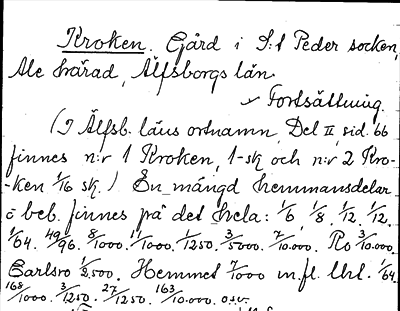 Kroken. Gård i S:t Peder socken,
Ale härad, Älfsborgs län.
Fortsättning.
(I Älfsb. läns ortnamn, Del II, sid. 66
finnes n:r 1 Kroken, 1-sk och n:r 2 Kro-
-ken 1/16 sk.) En mängd hemmansdelar
o beb. finnes på det hela: 1/6, 1/8, 1/12, 1/12,
1/64. 49/96. 8/1000. 1/1000. 1/1250. 3/5000. 7/10.000. Ro 3/10.000.
Carlsro 1/2,500. Hemmet 7/1000 m.fl. Utl. 1/64.
168/1000. 3/1250. 27/1250. 163/10.000. o.s.v.